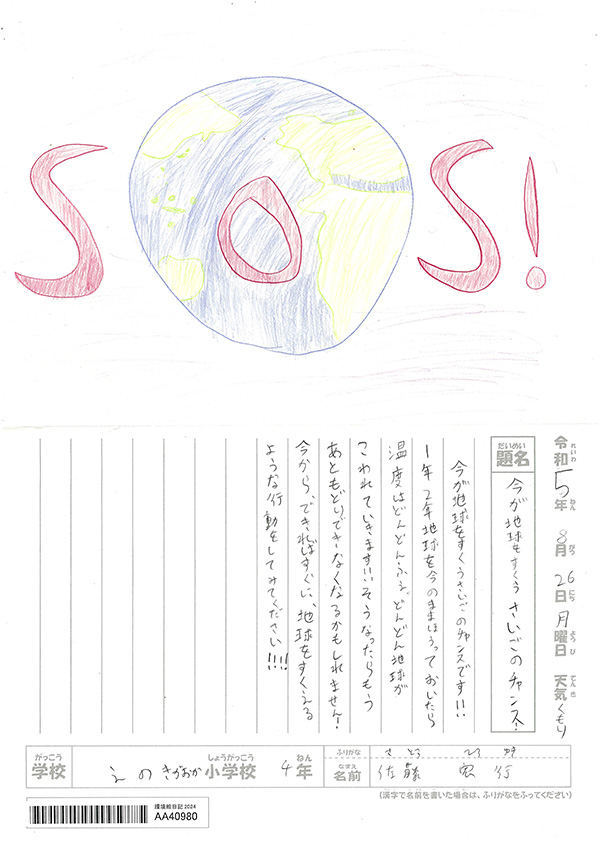 SOS!
令和5年8月26日月曜日 天気くもり
れいわ ねん がつ にち ようび てんき
だいめい
題名
今が地球をすくうさいごのチャンス!
今が地球をすくうさいごのチャンスです!!
1年2年地球を今のままほうっておいたら
温度はどんどんふえ、どんどん地球が
こわれていきます!!そうなったらもう
あともどりできなくなるかもしれません!
今から、できればすぐに、地球をすくえる
ような行動をしてみてください!!!!
がっこう
学校
えのきがおか
しょうがっこう
小学校
4年
ねん
ふりがな
さとう ひろゆき
なまえ
名前
佐藤 行
(漢字で名前を書いた場合は、ふりがなをふってください)
環境絵日記2024
AA40980